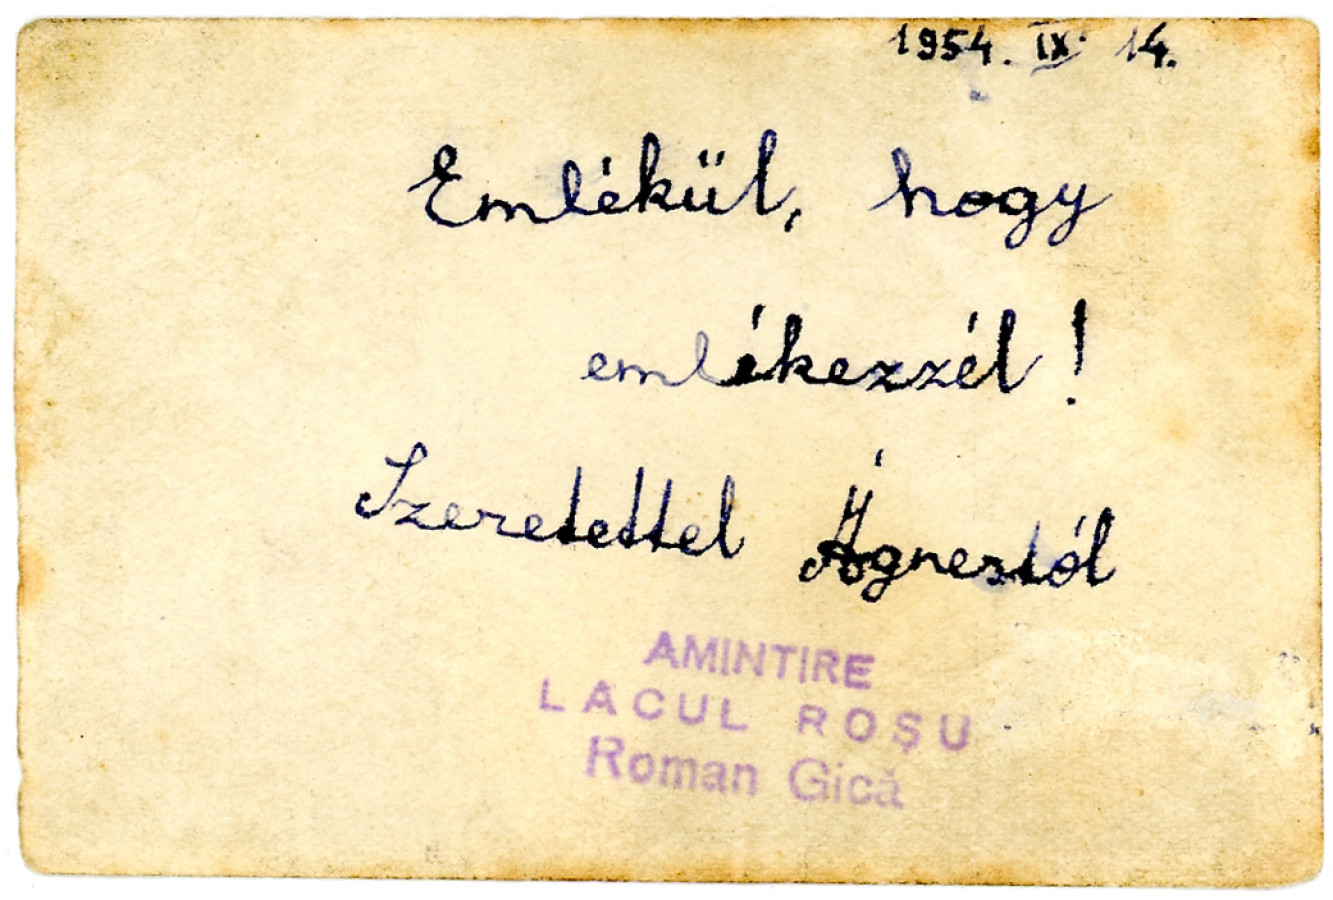 1954. IX. 14.
Emlékül, hogy
emlékezzél!
Szeretettel Ágnestól
AMINTIRE
LACUL ROȘU
Roman Gică